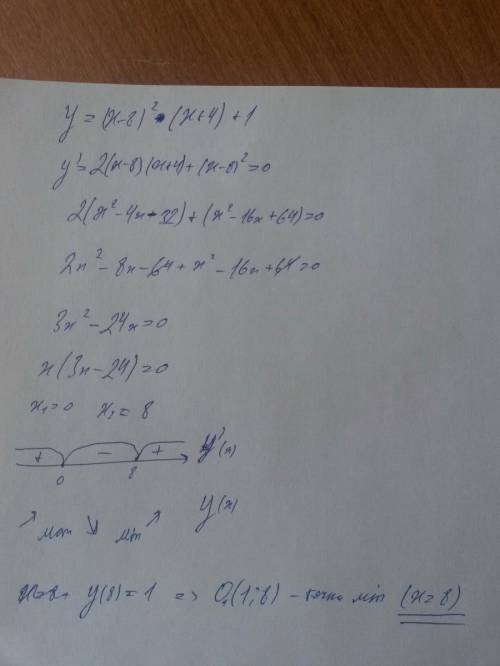 y = (x-8)² · (x+4) + 1
y' = 2(x-8)(x+4) + (x-8)² = 0
2(x² - 4x - 32) + (x² - 16x + 64) = 0
2x² - 8x - 64 + x² - 16x + 64 = 0
3x² - 24x = 0
x(3x - 24) = 0
x₁ = 0 x₂ = 8
+ - + y'(x)
0 8
y(x)
↗ max ↘ min ↗
y(8) = 1 => (1; 8) - точка min (x = 8)